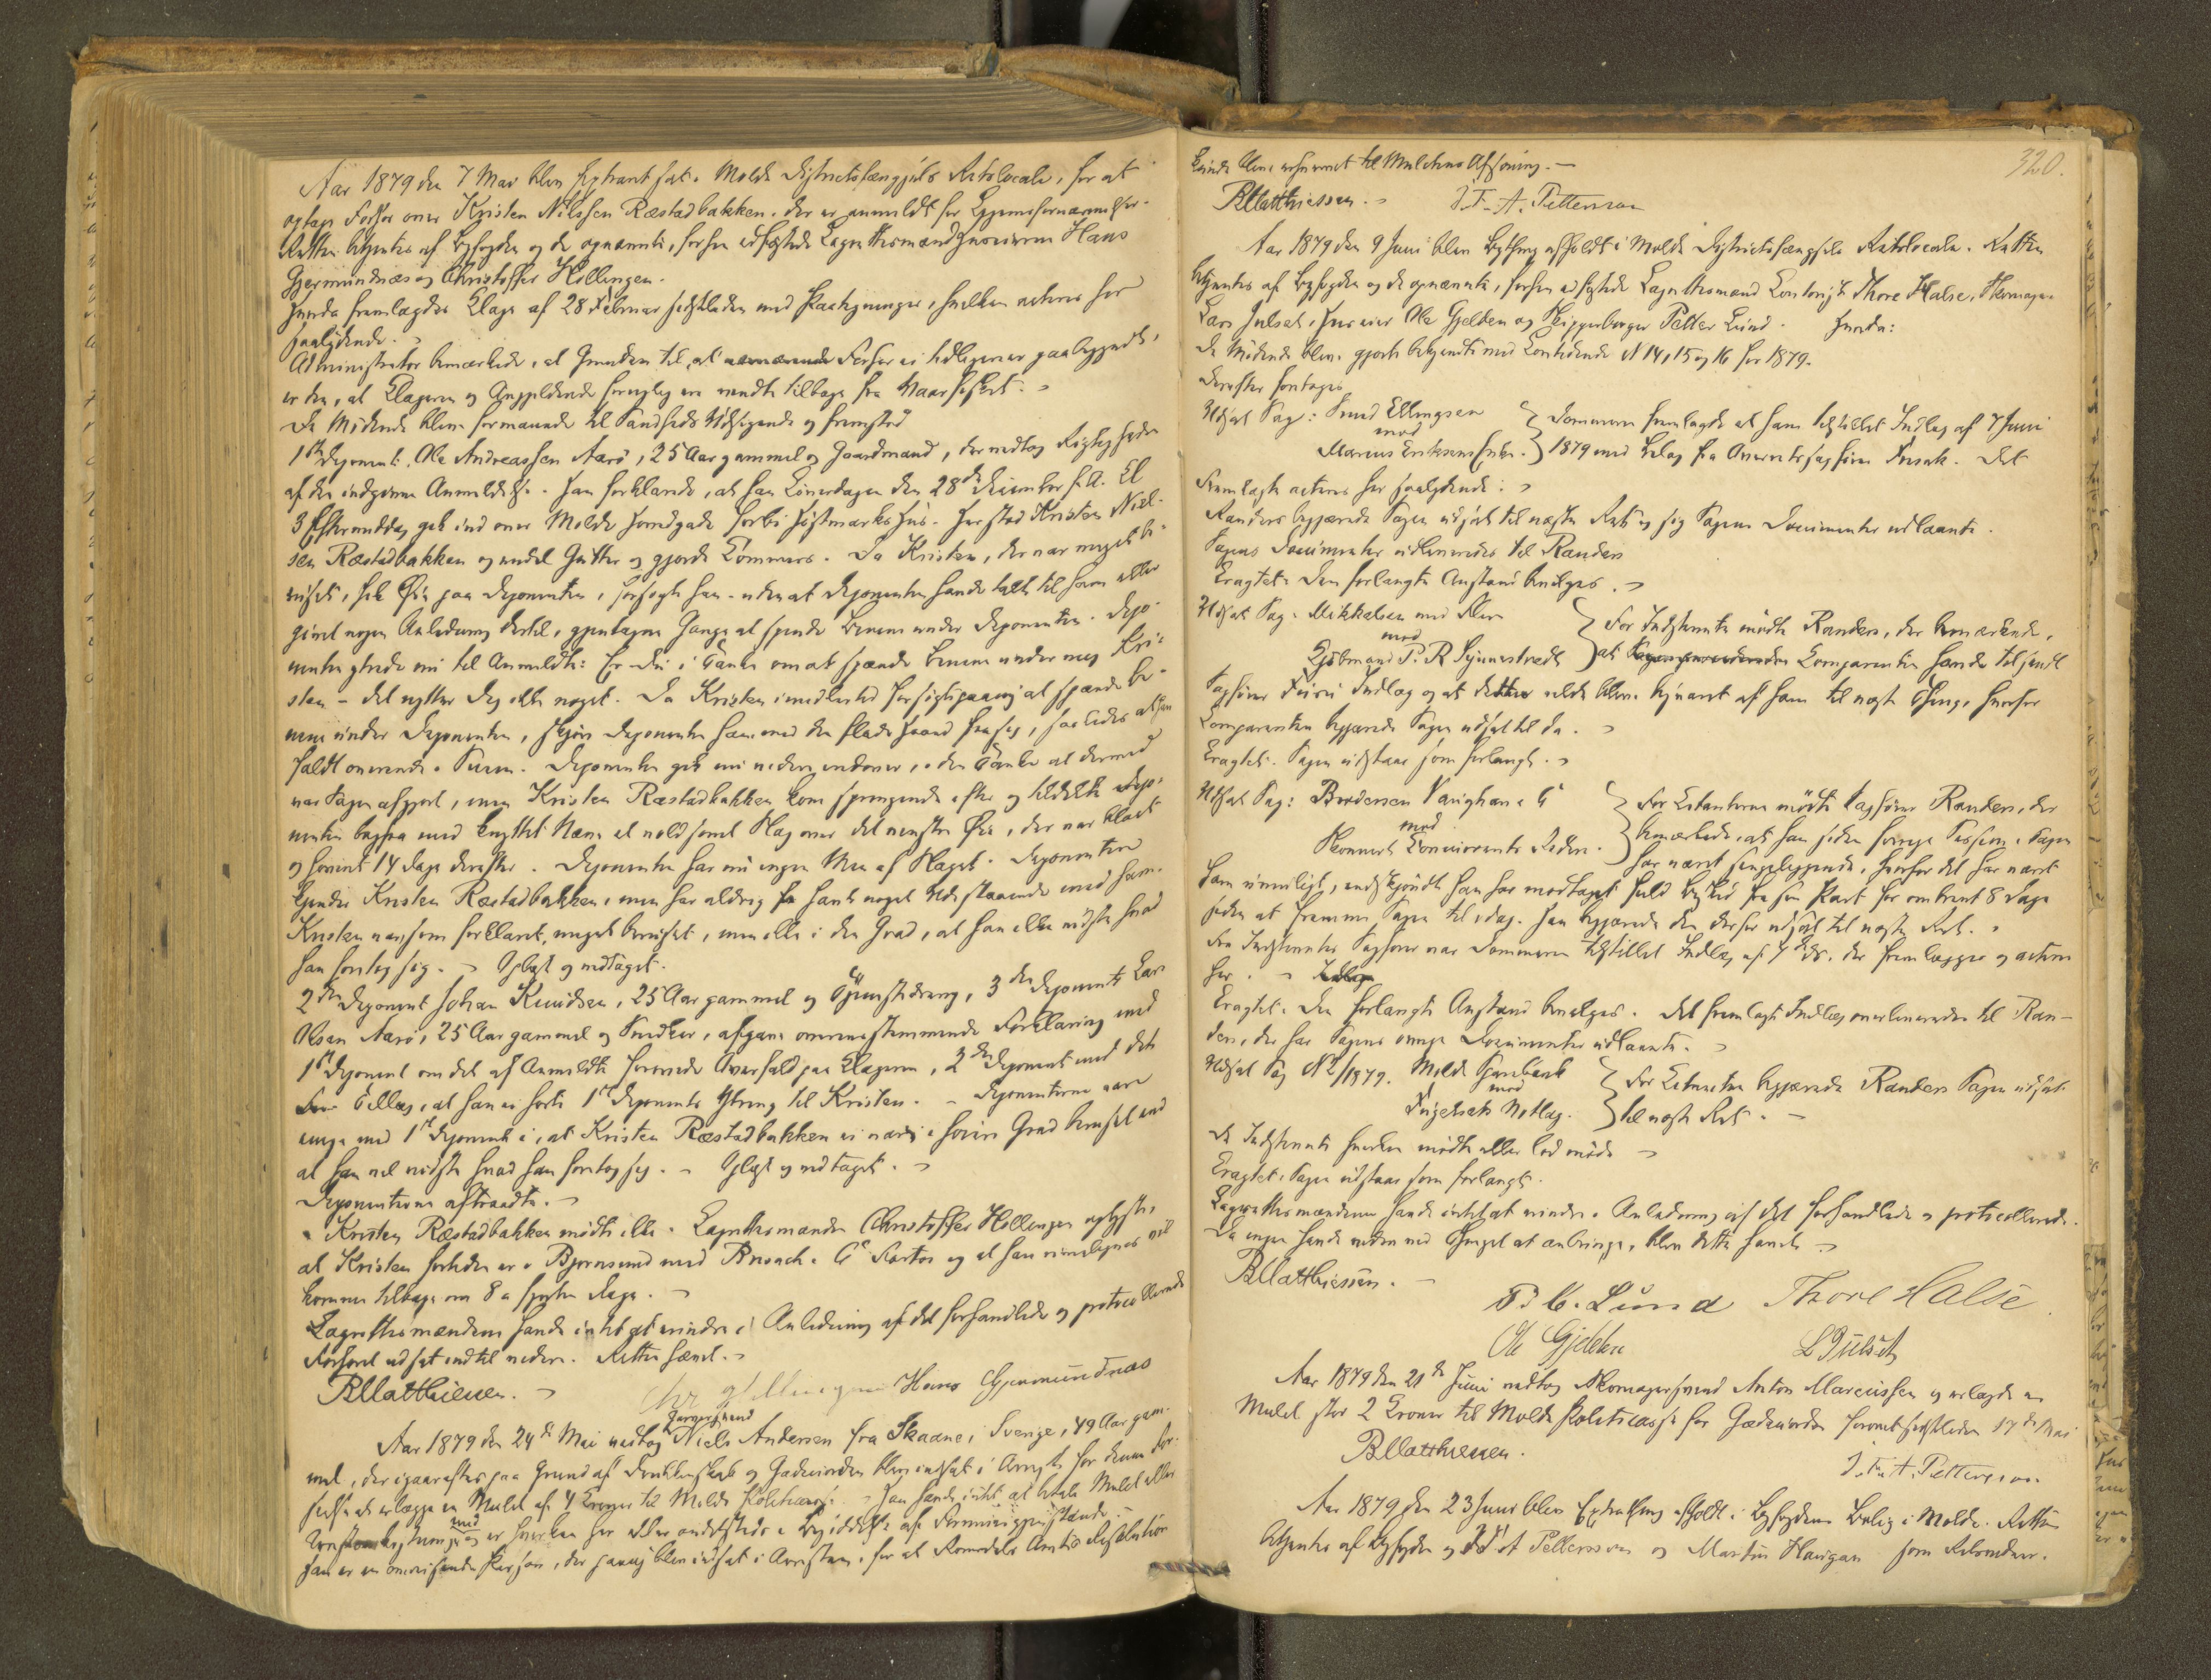 Aar 1879 den 7 Mai blev Extraret sat i Molde Distriktsfængsels Retslocale, for at
optage Forhør over Kristen Nilssen Ræstadbakken, der er anmeldt for Legemsfornærmelse.
Retten betjentes af Byfogden og de opnævnte, forhen edfæstede Lagrettesmænd Huseierne Hans
Gjermundnæs og Christoffer Hollingen.
Hvorda fremlagdes Klage af 28 Februar sidstleden med Paategninger, hvilken acteres her
saalydende.
Administrator bemærkede, at Grunden til, at Forhør ei tidligere er paabegyndt,
er den, at Klageren og Angjeldende først er vendte tilbage fra Vaarfisket.
De Mødende bleve formanede til Sandheds Udsigende og fremstod
1ste Deponent, Ole Andreassen Aarø, 25 Aar gammel og Gaardmand, der vedtog Rigtigheden
af den indgivne Anmeldelse. Han forklarede, at han Løverdagen den 28de Dec. f. A. Kl
3 Eftermiddag gik ind over Molde Hovedgade forbi Høstmarks Hus. Her stod Kristen Niel-
sen Ræstadbakken og endel Gutter og gjorde Kommers. Da Kristen, der var meget be-
ruset, fik Øie paa Deponenten, forsøgte han uden at Deponenten havde talt til ham eller
givet nogen Anledning dertil, gjentagne Gange at spænde Benene under Deponenten. Depo-
nenten ytrede nu til Anmeldte: Er Du i Tanke om at spænde Benene under mig Kri-
sten – det nytter Dig ikke noget. Da Kristen imidlertid forsøgte paany at spænde Be-
nene under Deponenten, skjøv Deponenten ham med den flade Haand fra sig, saaledes at han
faldt overende i Sneen. Deponenten gik nu videre indover, i den Tanke at dermed
var Sagen afgjort, men Kristen Ræstadbakken kom springende efter og tildelte Depo-
nenten bagfra med knyttet Næve et voldsomt Slag over det venstre Øie, der var blaat
og hovent 14 Dage derefter. Deponenten har nu ingen Men af Slaget. Deponenten
kjender Kristen Ræstadbakken, men har aldrig havt noget Udestaaende med ham.
Kristen var, som forklaret, meget beruset, men ikke i den Grad, at han ikke vidste hvad
han foretog sig. Oplæst og vedtaget.
2den Deponent Johan Knudsen, 25 Aar gammel og Tjenestedreng, 3die Deponent Lars
Olsen Aarø, 25 Aar gammel og Snedker, afgave overensstemmende Forklaring med
1ste Deponent om det af Anmeldte forøvede Overfald paa Klageren, 2den Deponent med det
Tillæg, at han ei hørte 1ste Deponents Ytring til Kristen. – Deponenterne vare
enige med 1ste Deponent i, at Kristen Ræstadbakken ei var i høiere Grad beruset end
at han vel vidste hvad han foretog sig. – Oplæst og vedtaget.
Deponenterne aftraadte.
Kristen Ræstadbakken mødte ikke. Lagrettesmanden Christoffer Hollingen oplyste,
at Kristen fortiden er i Bjørnsund med Brosach & Co Fartøi og at han rimeligvis vil
komme tilbage om 8 a fjorten Dage.
Lagrettesmændene havde intet at erindre i Anledning af det forhandlede og protocollerede
Forhøret udsat indtil videre. Retten hævet.
B Matthiessen. Chr Hollingen Hans Gjermundnæs
Garversvend
Aar 1879 den 24de Mai vedtog Niels Andersen fra Skaane i Sverige, 49 Aar gam-
mel, der igaaraftes paa Grund af Drukkenskab og Gadeuorden blev indsat i Arrest, for denne For-
seelse at erlægge en Mulct af 4 Kroner til Molde Politicasse. – Han havde intet at betale Mulcten
med og er hverken her eller andetsteds i Besiddelse af Formuesgjenstande.
Han er en omreisende Person, der paany blev indsat i Arresten, for at Romsdals Amts Resolution
320.
kunde blive erhvervet til Mulctens Afsoning. –
B Matthiessen. J. Fr. A. Petterson
Aar 1879 den 9 Juni blev Bything afholdt i Molde Distriktsfængsels Retslocale. Retten
betjentes af Byfogden og de opnævnte, forhen edfæstede Lagrettesmænd Contorist Thore Halse, Skomager
Lars Julset, Huseier Ole Gjelden og Skipperborger Petter Lund. Hvorda:
De Mødende bleve gjort bekjendte med Lovtidende No 14, 15 og 16 for 1879.
Derefter foretoges
Udsat Sag: Knud Ellingsen
mod
Marcus Eriksens Enke.
Dommeren fremlagde et ham tilstillet Indlæg af 7 Juni
1879 med Bilag fra Overretssagfører Dusak. Det
Fremlagte acteres her saalydende:
Randers begjærede Sagen udsat til næste Ret og sig Sagens Documenter udlaante.
Sagens Documenter udleveredes til Randers
Eragtet: Den forlangte Anstand bevilges.
Udsat Sag: Mikkelsen med Flere
mod
Kjøbmand P. R. Synnestvedt
For Indstevnte mødte Randers, der bemærkede,
at Comparenten havde tilsendt
Sagfører Indlæg og at dette vilde blive besvaret af ham til næste Thing, hvorfor
Comparenten begjærede Sagen udsat til da.
Eragtet: Sagen udstaar som forlangt.
Udsat Sag: Brødersen Vaughan & Co
mod
Konnerts Concursbo
For Citanterne mødte Sagfører Randers, der
bemærkede, at han siden forrige Session i Sagen
har været sengeliggende, hvorfor det har været
ham umuligt, endskjøndt han har modtaget fuld Besked fra sin Part for omtrent 8 Dage
siden at fremme Sagen til idag. Han begjærede den derfor udsat til næste Ret.
Fra Indstevntes Sagfører var Dommeren tilstillet Indlæg af 7de ds. der fremlægges og acteres
her.
Eragtet: Den forlangte Anstand bevilges. Det fremlagte Indlæg overleveredes til Ran-
ders, der har Sagens øvrige Documenter udlaante.
Udsat Sag No 2/1879. Molde Sparebank
mod
For Citanten begjærede Randers Sagen udsat
til næste Ret. –
De Indstevnte hverken mødte eller lod møde
Eragtet: Sagen udstaar som forlangt.
Lagrettesmændene havde intet at erindre i Anledning af det forhandlede og protocollerede.
Da ingen havde videre ved Thinget at anbringe, blev dette hævet
B Matthiessen. –
P. C. Lund Thore Halse
Ole Gjelden L Julset
Aar 1879 den 21de Juni vedtog Skomagersvend Anton Marcussen at erlægge en
Mulct stor 2 Kroner til Molde Politicasse for Gadeuorden forøvet sidstleden 17de Mai
B Matthiessen.
J. Fr. A. Petterson
Aar 1879 den 23 Juni blev Extrathing afholdt i Byfogdens Bolig i Molde. Retten
betjentes af Byfogden og J Fr A Petterson og Martin Haugan som Retsvidner.